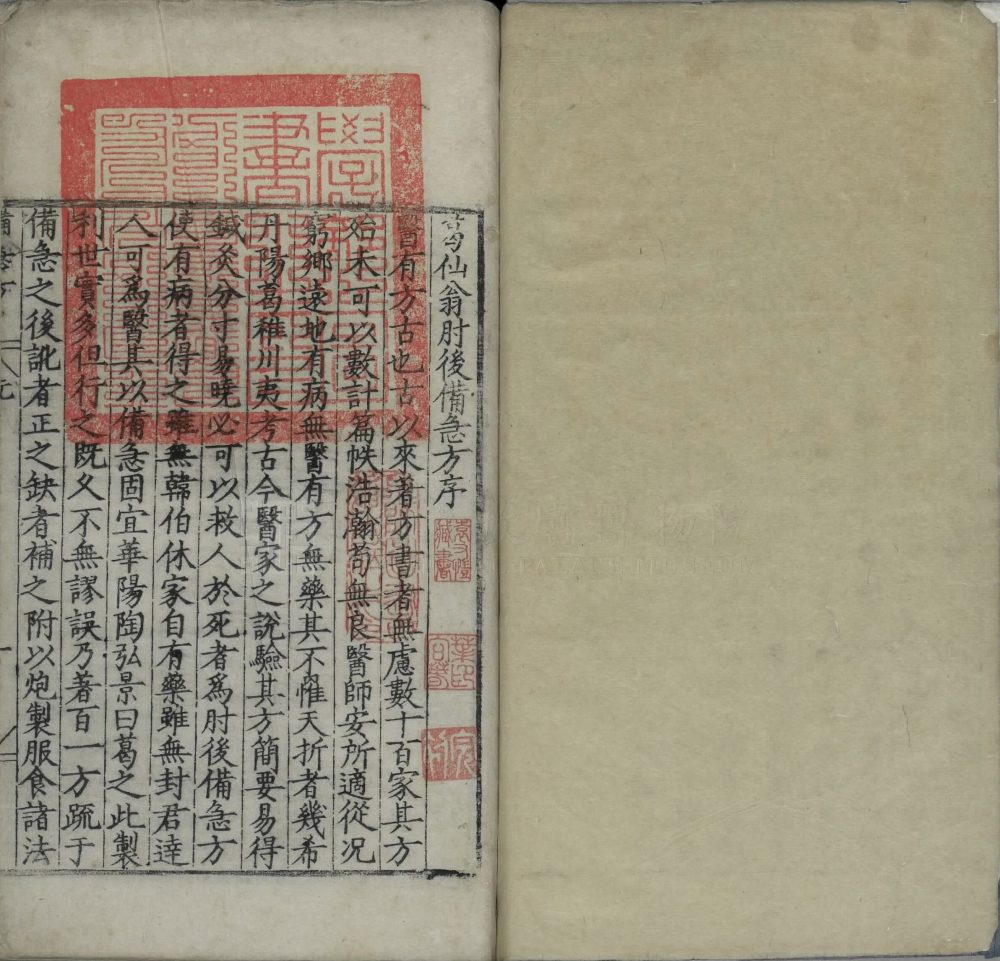 葛仙翁肘後備急方序
醫有方古也古以來著方書者無慮數十百家其方
殆未可以數計篇帙浩瀚苟無良醫師安所適從況
窮鄉遠地有病無醫有方無藥其不罹夭折者幾希
丹陽葛稚川夷考古今醫家之說驗其方簡要易得
鍼灸分寸易曉必可以救人於死者爲肘後備急方
使有病者得之雖無韓伯休家自有藥雖無封君達
人可爲醫其以備急固宜華陽陶弘景曰葛之此製
利世實多但行之既久不無謬誤乃著百一方疏于
備急之後訛者正之缺者補之附以炮製服食諸法
藏書